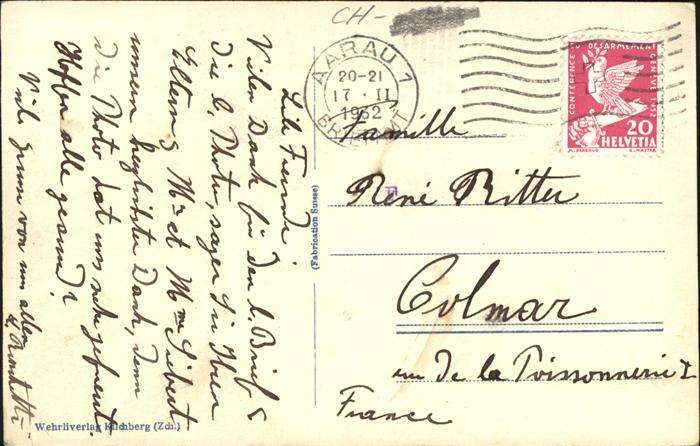 CH-
AARAU 1
20-21
17·II
1932
BRIEFAMT
CONFERENCE DU DESARMEMENT GENEVE 1932
20
HELVETIA
Lb. Freunde!
Vielen Dank für den l. Brief &
die l. Photo, sagen Sie Ihren
Eltern & Mr et Mme Siebert
unsern herzlichster Dank, denn
die Photo hat uns sehr gefreut.
Hoffen alle gesund?
Viele Grüsse von uns allen
Famille
René Ritter
Colmar
rue de la Poissonnerie 1
France
(Fabrication Suisse)
Wehrliverlag Kilchberg (Zch.)